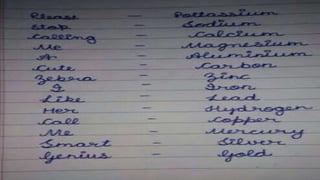 Please — Pottassium
Stop — Sodium
Calling — Calcium
Me — Magnesium
A — Aluminium
Cute — Carbon
Zebra — Zinc
I — Iron
Like — Lead
Her — Hydrogen
Call — Copper
Me — Mercury
Smart — Silver
Genius — Gold